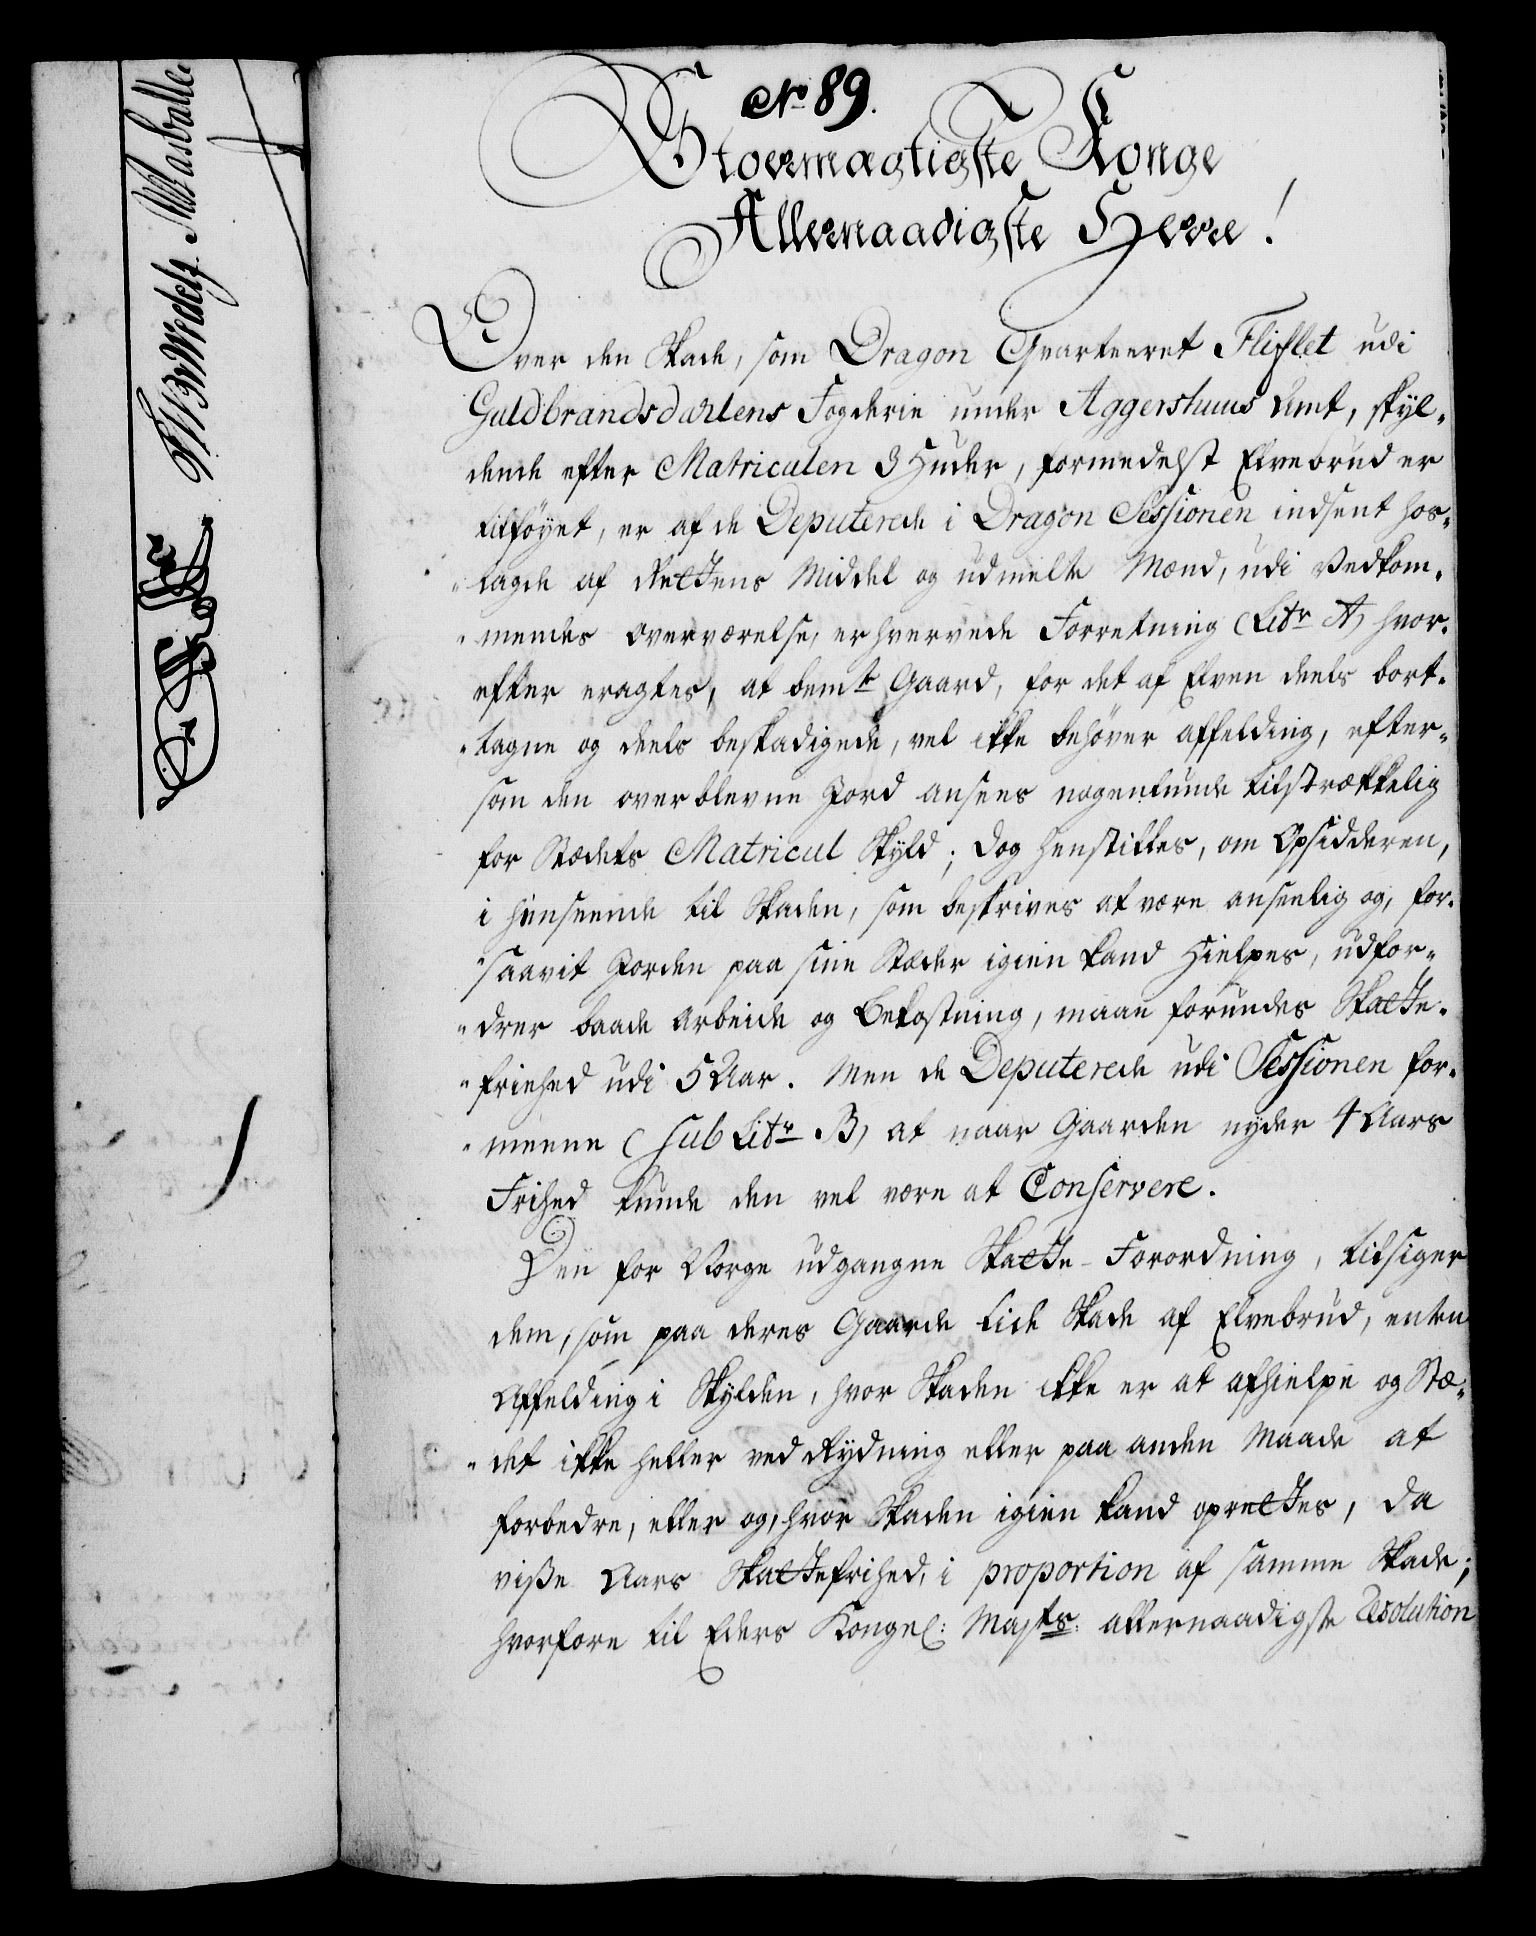 No 89.
Stoermagtigste Konge
Allernaadigste Herre!
Over den Skade, som Dragon Qvarteeret Fliflet udi
Guldbrandsdarlens Fogderie under Aggershuus Amt, skyl-
dende efter Matriculen 3 Huder, formedelst Elvebrud er
tilføyet, er af de Deputerede i Dragon Sessionen indsent hos-
-tagde af Rettens Middel og udmelte Mænd, udi Vedkom-
-mendes Overværelse, erhvervede Forretning (Litr A) hvor-
efter eragtes, at bemte Gaard, for det af Elven deels bort-
-tagne og deels beskadigede, vel ikke behøver affelding, efter-
som den overblevne Jord ansees nogenlunde tilstrækkelig
for Stædets Matricul Skyld; dog henstilles, om Opsidderen,
i henseende til Skaden, som beskrives at være anseelig og, for-
-saavit Jorden paa sine Stæder igien kand hielpes, udfor-
-drer baade Arbeide og Bekostning, maae forundes Skatte-
-friehed udi 5 Aar. Men de Deputerede udi Sessionen for-
-meene (sub Litr B) at naar Gaarden nyder 4 Aars
Frihed kunde den vel være at Conservere.
Den for Norge udgangne Skatte-Forordning, tilsiger
dem, som paa deres Gaarde lide Skade af Elvebrud, enten
Affelding i Skylden, hvor Skaden ikke er at afhielpe og Stæ-
-det ikke heller ved Rydning eller paa anden Maade at
forbedre, eller og, hvor Skaden igien kand oprettes, da
visse Aars Skattefrihed, i proportion af samme Skade;
hvorfore til Eders Kongel: Majts: allernaadigste Resolution